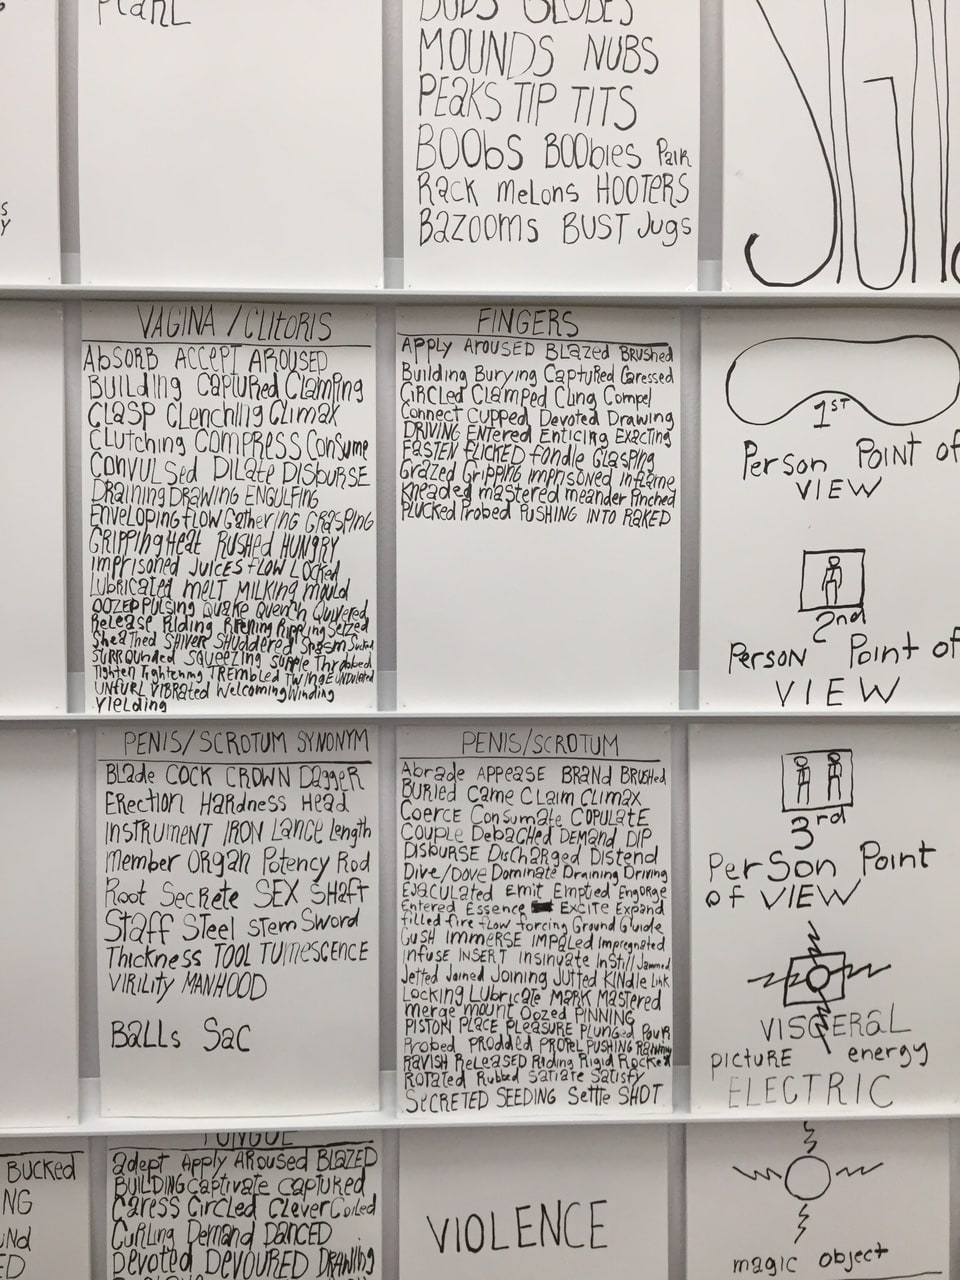 PEARL
BUDS GLOBES
MOUNDS NUBS
PEaKS TIP TITS
BOObS BOObies Pair
Rack meLons HOOTERS
Bazooms BUST Jugs
VAGINA / CLitORIS
AbSORB ACCEPT AROUSED
BUILDING CAPTURed Clamping
CLaSP CLenching Climax
CLUTCHING COMPRESS Consume
CONVULSed DILate DISBURSE
DRaining DRAWING ENGULFING
ENVELOPING FLOW Gathering GRASPING
GRIPPING Heat RUSHED HUNGRY
Imprisoned JUICES FLOW LOCKed
LUbricated meLT MILKING mould
OOZED PULSING QUake Quench Quivered
Release Riding Ripening Rippling Seized
SheaThed SHIVER SHUddered Spasm Sucked
SURROUNded SQUEEZING SUPPLE Throbbed
Tighten Tightening TREmbled TWINGE UNDULated
UNFURL VIBRated WeLcoming Winding
YIeLding
FINGERS
APPLY AROUSED BLazed BRUShed
Building Burying Captured Caressed
CIRCLed CLamped CLing CompeL
Connect CUPPED Devoted Drawing
DRIVING ENTered Enticing EXacting
FASTEN FLICKED Fondle GLASPING
Grazed GRIPPING Imprisoned Inflame
Kneaded mastered meander Pinched
PLUCKed Probed PUSHING INTO RAKED
1ST
Person POINT of
VIEW
2nd
Person Point of
VIEW
PENIS/ SCROTUM SYNONYM
BLade COCK CROWN Dagger
Erection Hardness Head
INSTRUMENT IRON Lance Length
Member Organ Potency Rod
Root Secrete SEX SHaFT
STaff STeel sTem Sword
Thickness TOOL TUmESCENCE
VIRILity MANHOOD
BaLLs Sac
PENIS/SCROTUM
Abrade APPEASE BRANd BRUShed
BURIED Came CLaim CLIMAX
Coerce Consumate COPULATE
COUPLE Debached DEMAND DIP
DISBURSE DisCHarged Distend
Dive/DOVE Dominate Draining Driving
EJaculated Emit Emptied Engorge
Entered Essence EXCITE Expand
filled fire fLow forcing Ground Guide
GuSH ImmERSE IMPaLed Impregnated
INFUSE INSERT Insinuate Instill Jammed
Jetted Joined Joining JUTTed KINdle Link
LOCKing LUbricate MARK MAStered
merge mount Oozed PINNING
PISTON PLACE PLeasure PLunged Pour
Probed PRODDED PROPeL PUSHING Ramming
RAVISH ReLEASED Riding Rigid Rocked
ROTated Rubbed Satiate Satisfy
SeCRETED SEEDING Settle SHOT
3rd
PerSon Point
of VIEW
VISCERaL
picture energy
ELECTRIC
BUCKed
NG
TONGUE
adept Apply AROUSED BLAZED
BUILDING Captivate captured
Caress CircLed CLever CoiLed
CURLing Demand DANCED
Devoted DEVOURED DRAWING
VIOLENCE
magic object